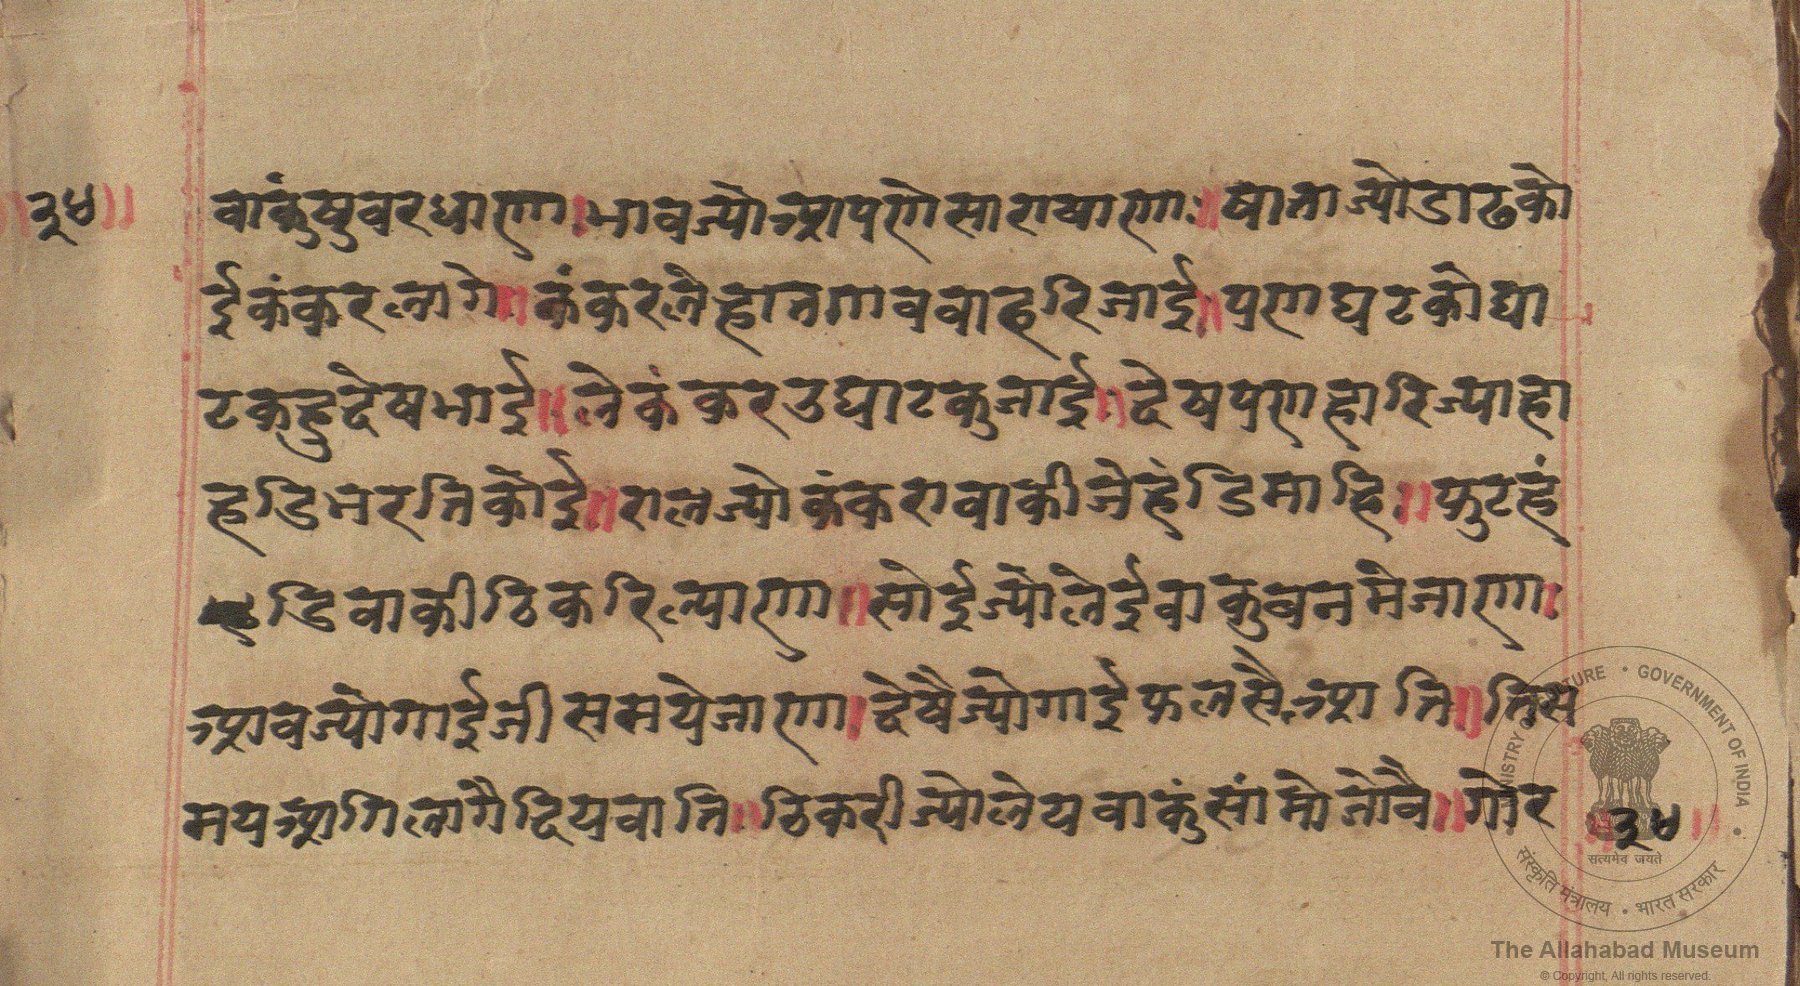 ॥३४॥
वांकुषुवरधाराण।भावज्योआपणेसारायाराण॥षाताज्योडाढको
ईकंकरलागे॥कंकरलेहातगाववाहरिजाई॥पणघटकोघा
टकहुदेषभाई॥लेकंकरउघाटकुजाई॥देषपणहारिज्याहा
हडिभरतिकोई॥रालज्योकंकरावाकीजेहंडिमाहि॥फुटहं
डिवाकीठिकरिल्याराण॥सोईज्योलेईवाकुवनमेजाराण।
आवज्योगाईजीससमयेजाराण।देषैज्योगाईफलसैआति॥तिस
मयआगिलागैदियवाति॥ठिकरीज्योलेयवाकुंसांमोजोवै॥गोर
॥३४॥
MINISTRY OF CULTURE • GOVERNMENT OF INDIA •
सत्यमेव जयते
संस्कृति मंत्रालय • भारत सरकार
The Allahabad Museum
© Copyright, All rights reserved.